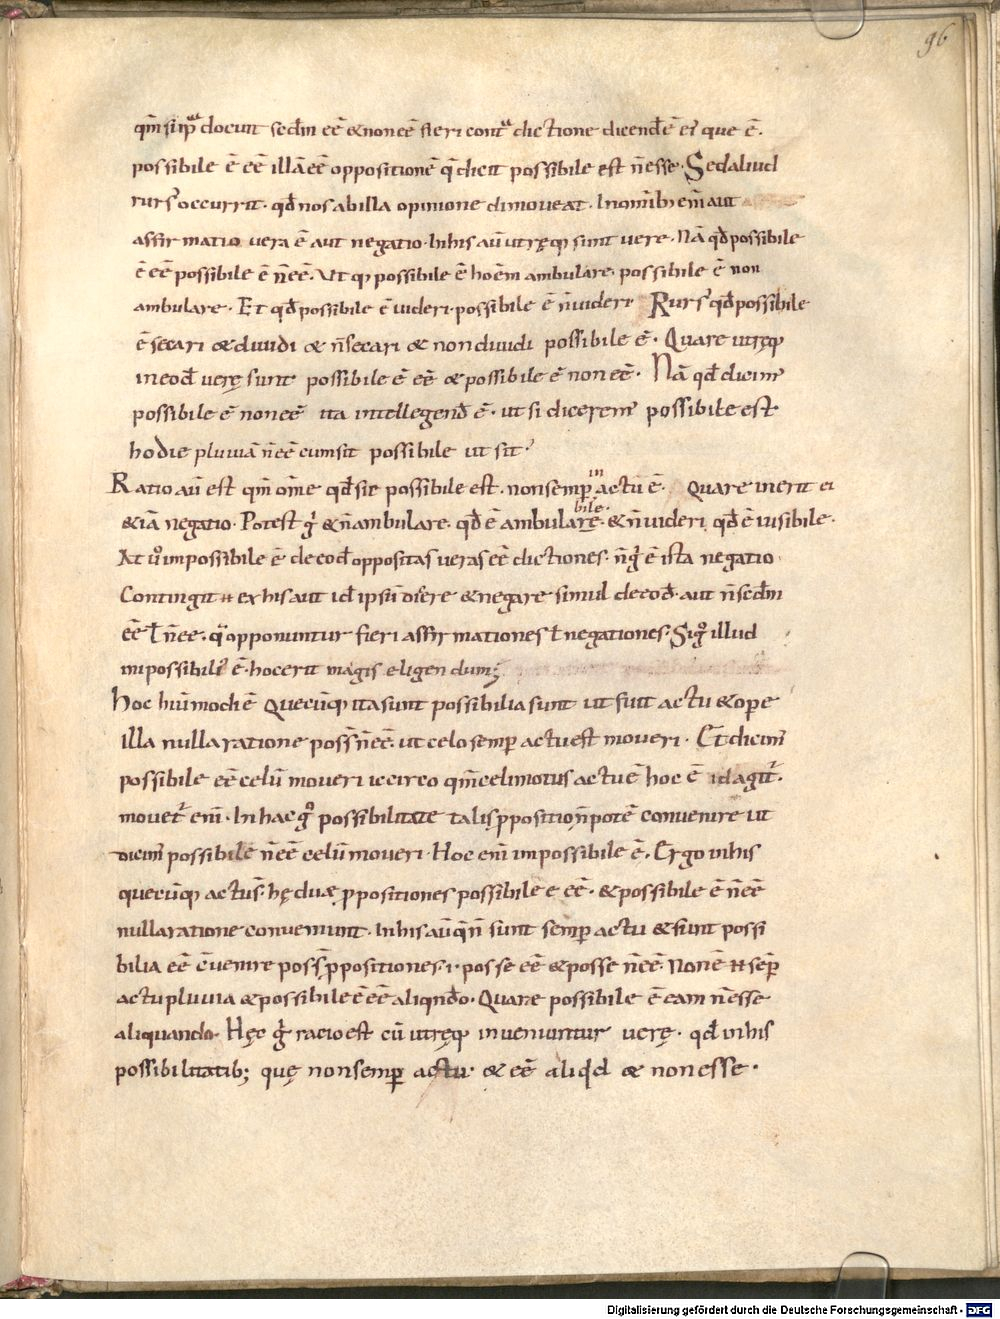 96
qm̄ si ip̄a docuit sed̄m eē & non eē fieri cont̄a dictione dicend̄ ē ei que ē.
possibile ē eē illā eē oppositionē q̄ dicit possibile est n̄ esse. Sed aliud
rurs' occurrit. qd̄ nos ab illa opinione dimoveat. In om̄ib; eni̅ aut
affirmatio vera ē aut negatio. In his aū utręq; sunt vere. Nā qd̄ possibile
ē eē possibile ē n̄ eē. Ut q; possibile ē hoēm ambulare. possibile ē non
ambulare. Et qd̄ possibile ē videri. possibile ē n̄ videri Rurs' qd̄ possibile
ē secari & dividi & n̄ secari & non dividi possibile ē. Quare utręq;
in eod̄ verę sunt possibile ē eē & possibile ē non eē. Nā qd̄ dicim'
possibile ē non eē ita intellegend̄ ē. ut si dicerem' possibile est
hodie pluviā n̄ eē cum sit possibile ut sit.
Ratio aū est qm̄ om̄e qd̄ sic possibile est. non semp̄ in actu ē. Quare inerit ei
& iā negatio. Potest g̊ & n̄ ambulare. qd̄ ē ambulabile. & n̄ videri. qd̄ ē visibile.
At v̊ impossibile ē de eod̄ oppositas veras eē dictiones. n̄ g̊ ē ista negatio
Contingit ++ ex his aut id ipsū dicere & negare simul de eod̄. aut n̄ sed̄m
eē ł n̄ eē. q̄ opponuntur fieri affirmationes ł negationes. Si g̊ illud
impossibili' ē. hoc erit magis eligendum;
Hoc hui' modi ē Quecūq; ita sunt possibilia sunt ut sint actu & ope
illa nulla ratione poss̄ n̄ eē. ut celo semp̄ actu est moveri. Et̄ dicim'
possibile eē celū moveri iccirco qm̄ celi motus actu ē hoc ē id agit'.
movet' eni̅. In hac g̊ possibilitate talis ppositio n̄ potē convenire ut
dicim' possibile n̄ eē celū moveri. Hoc eni̅ impossibile ē. Ergo in his
quecūq; actu s̄. hę duę ppositiones possibile e eē. & possibile ē n̄ eē
nulla ratione conveniunt. In his aū q̄ n̄ sunt semp̄ actu & sunt possi
bilia eē c̄venire poss̄ ppositiones. i. posse eē & posse n̄ eē. Non ē ++ semp̄
actu pluvia & possibile ē eē aliqn̄do. Quare possibile ē eam n̄ esse
aliquando. Hęc g̊ racio est cū utręq; inveniuntur verę. qd̄ in his
possibilitatib; quę non semp̄ actu & eē aliqd & non esse.
Digitalisierung gefördert durch die Deutsche Forschungsgemeinschaft - DFG